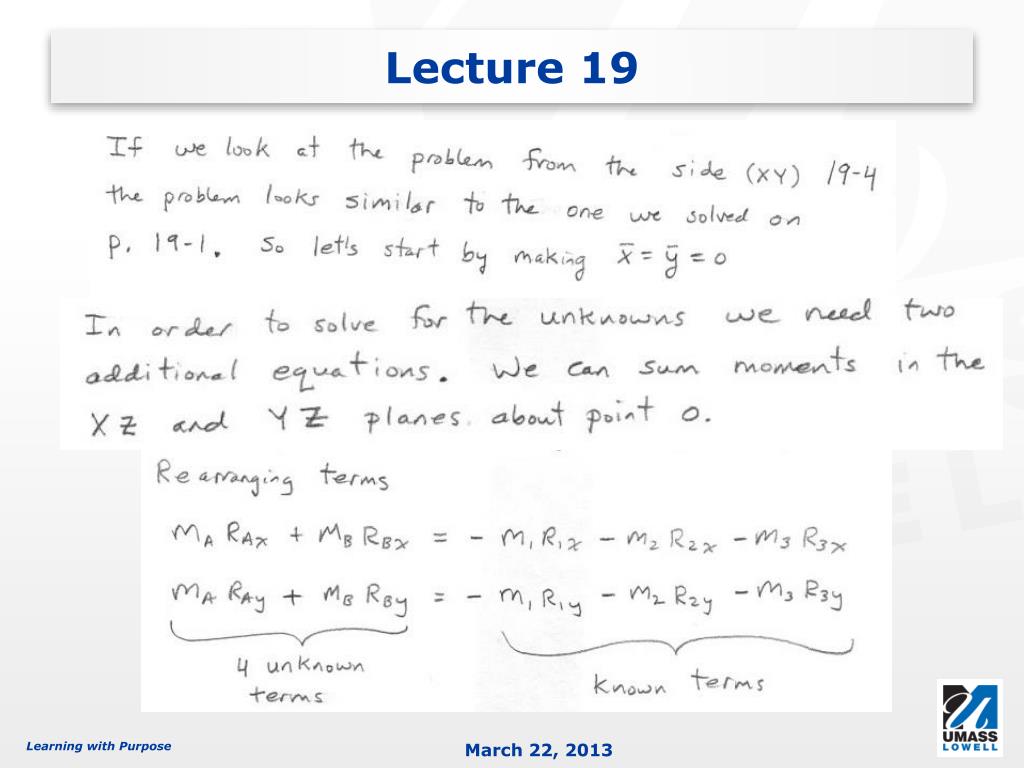 Lecture 19
If we look at the problem from the side (XY) 19-4
the problem looks similar to the one we solved on
p. 19-1. So let's start by making x̄ = ȳ = 0
In order to solve for the unknowns we need two
additional equations. We can sum moments in the
XZ and YZ planes about point O.
Rearranging terms
m_A R_Ax + m_B R_Bx = - m_1 R_1x - m_2 R_2x - m_3 R_3x
m_A R_Ay + m_B R_By = - m_1 R_1y - m_2 R_2y - m_3 R_3y
4 unknown
terms
known terms
UMASS
LOWELL
Learning with Purpose
March 22, 2013